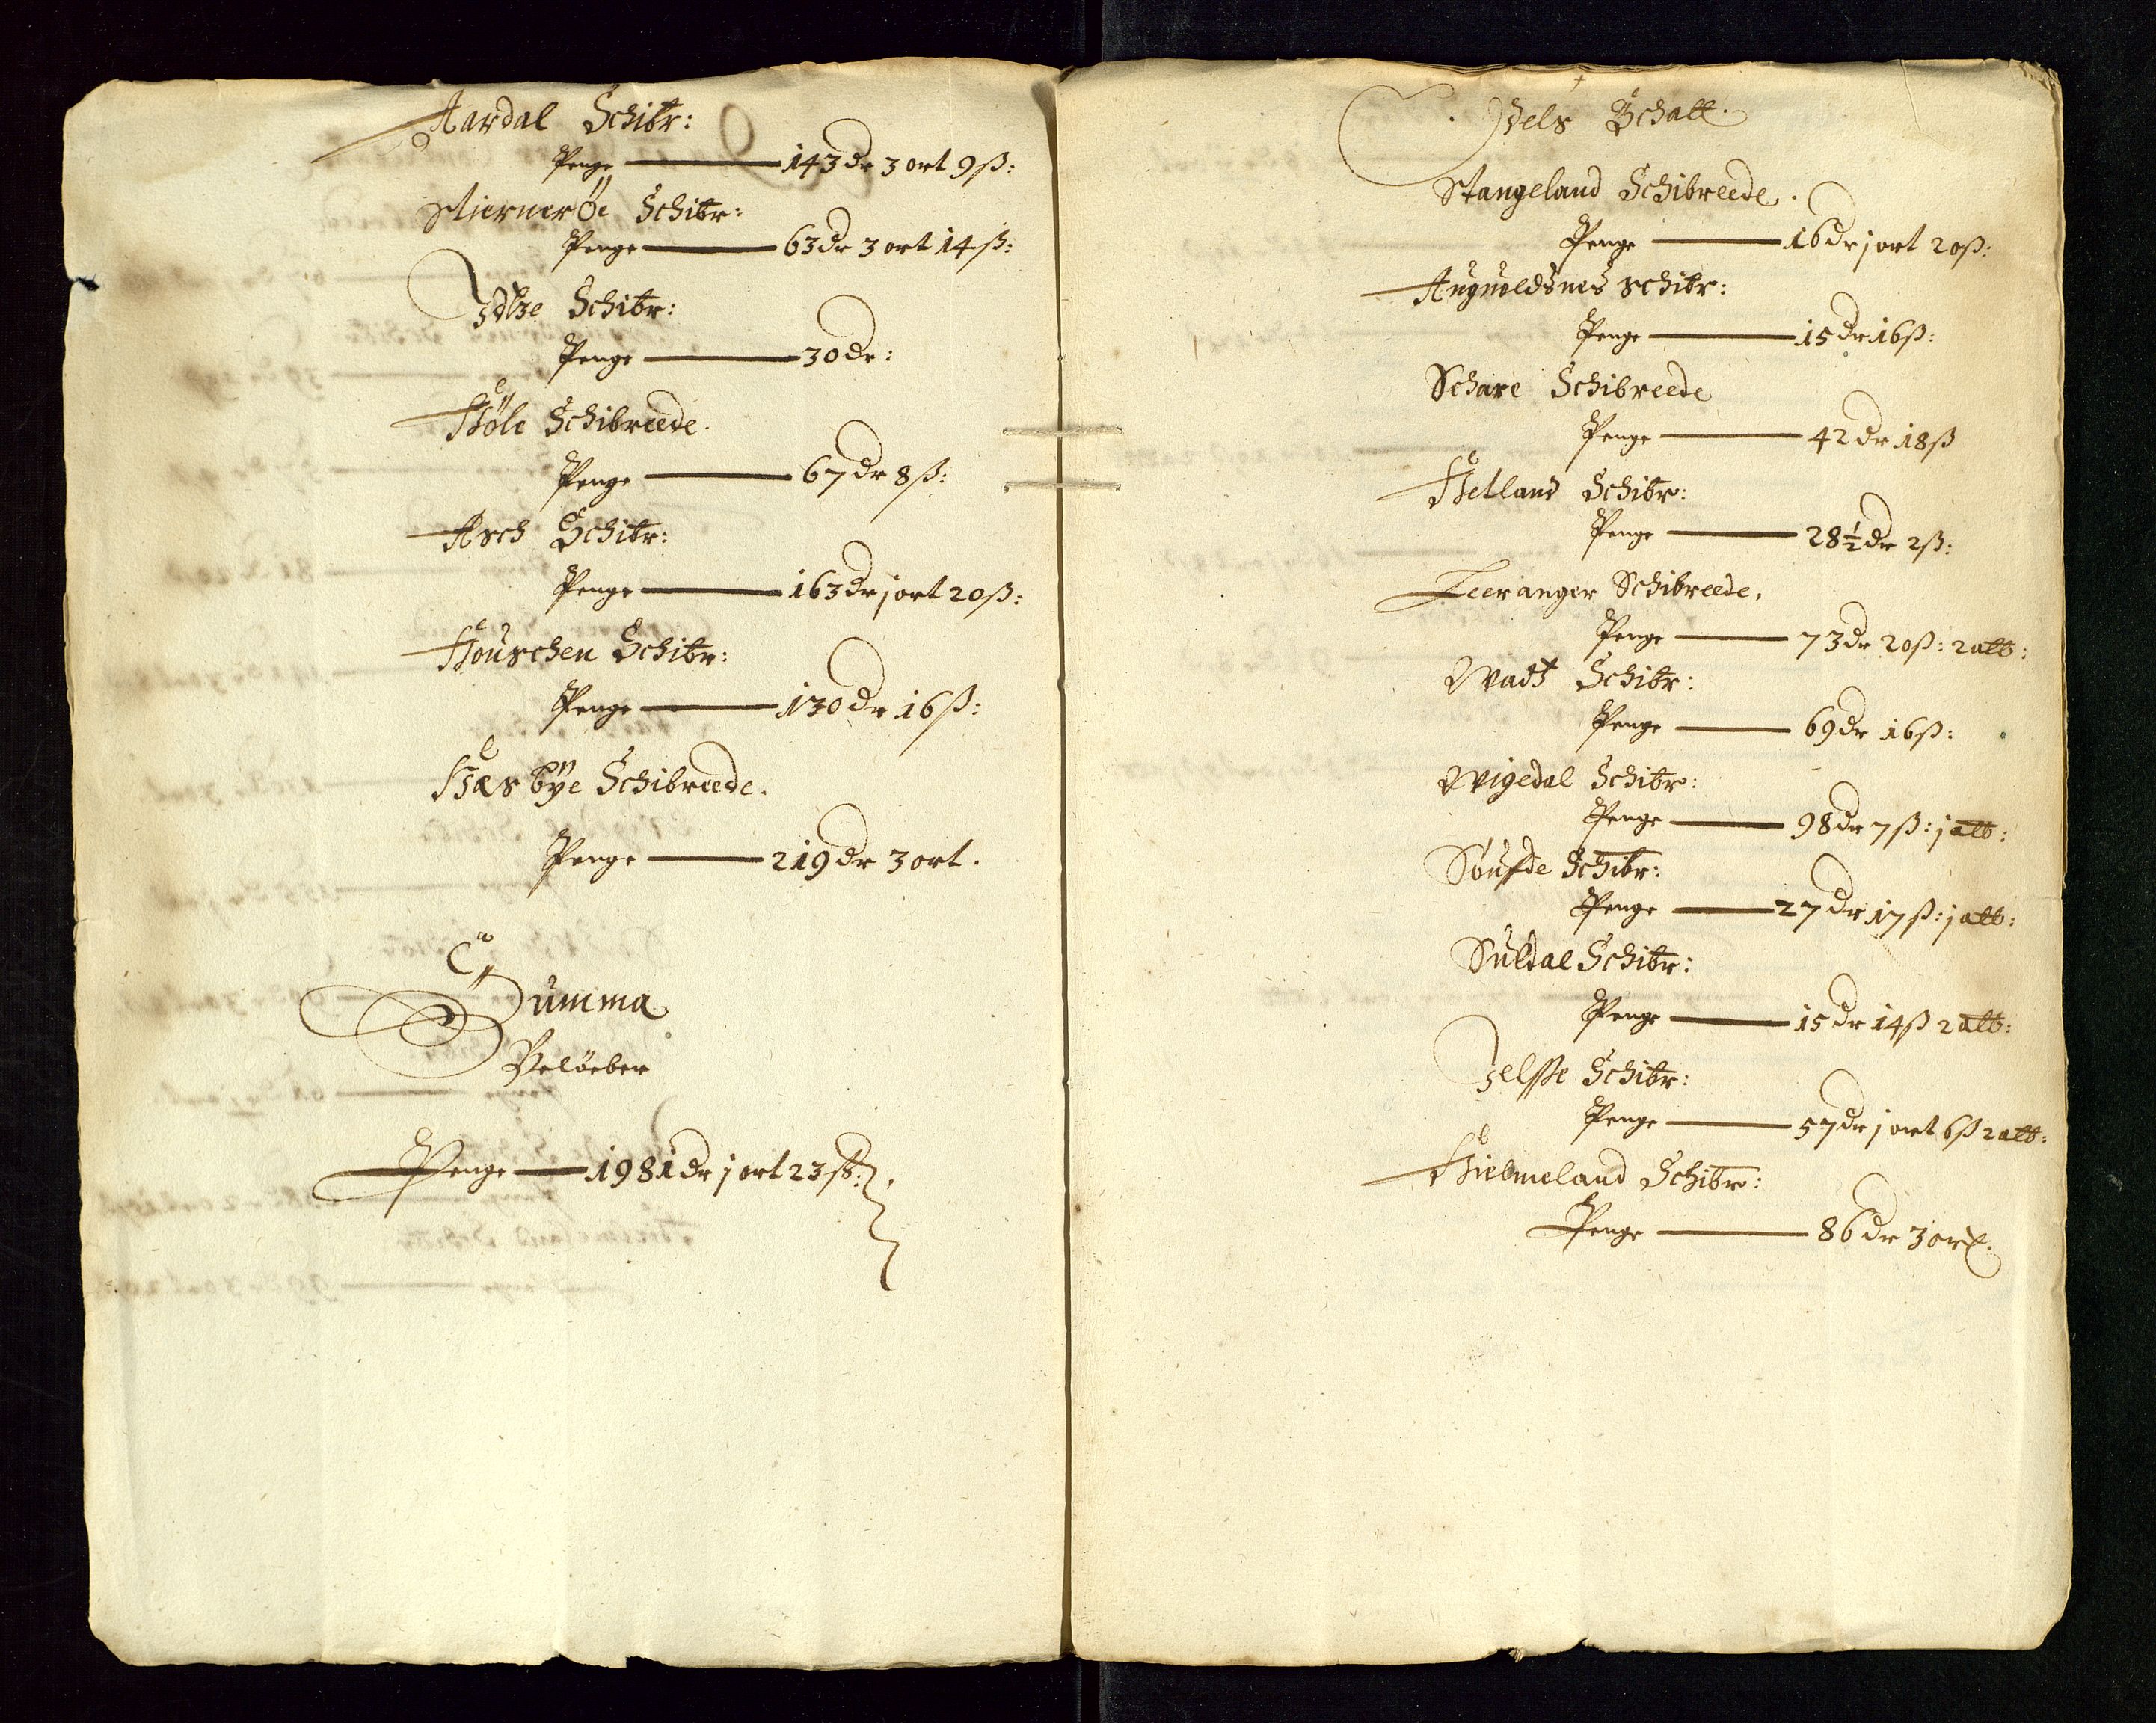 Aardal Schibr:
Penge 143 dr 3 ort 9 ß:
Stierneröe Schibr:
Penge 63 dr 3 ort 14 ß:
Idtze Schibr:
Penge 30 dr:
Höle Schibreede.
Penge 67 dr 8 ß:
Asch Schibr:
Penge 163 dr j ort 20 ß:
Houschen Schibr:
Penge 130 dr 16 ß:
Hæsbÿe Schibreede.
Penge 219 dr 3 ort.
Summa
Belöeber
Penge 1981 dr j ort 23 ß:
Schatt.
Stangeland Schibreede.
Penge 16 dr j ort 20 ß:
Auguoldsnes Schibr:
Penge 15 dr 16 ß:
Schare Schibreede
Penge 42 dr 18 ß
Hetland Schibr:
Penge 28½ dr 2 ß:
Leeranger Schibreede.
Penge 73 dr 20 ß: 2 alb:
Wadtz Schibr:
Penge 69 dr 16 ß:
Wigedal Schibr:
Penge 98 dr 7 ß: j alb:
Soufde Schibr:
Penge 27 dr 17 ß: j alb:
Suldal Schibr:
Penge 15 dr 14 ß 2 alb:
Jelsse Schibr:
Penge 57 dr j ort 6 ß 2 alb:
Hielmeland Schibr:
Penge 86 dr 3 ort.